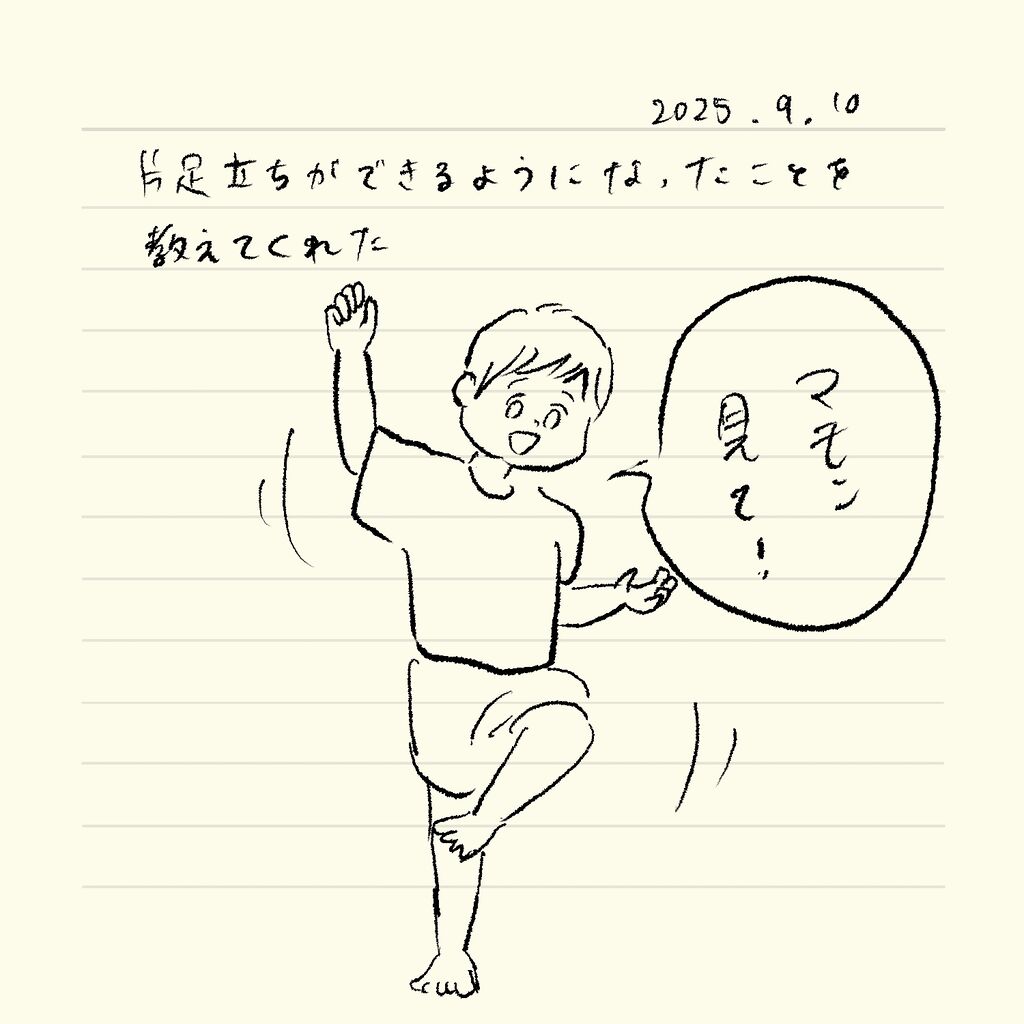 2025.9.10
片足立ちができるようになったことを
教えてくれた
マモン
見て!